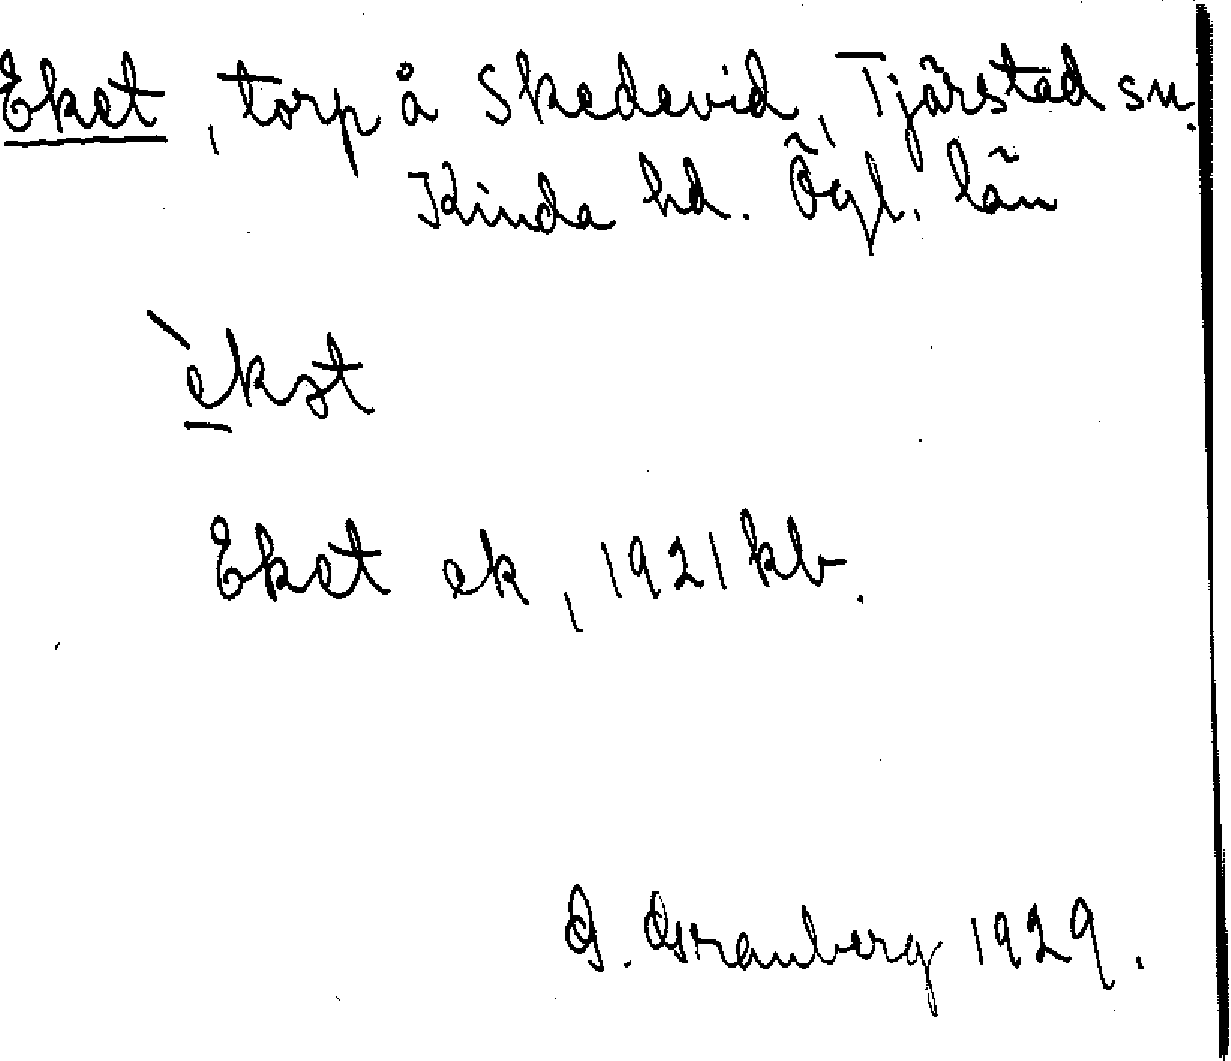 Eket, torp å Skedevid, Tjärstad sn.
Kinda hd. Ögl. län
èkət
Eket ek, 1921 kb.
G. Granberg 1929.